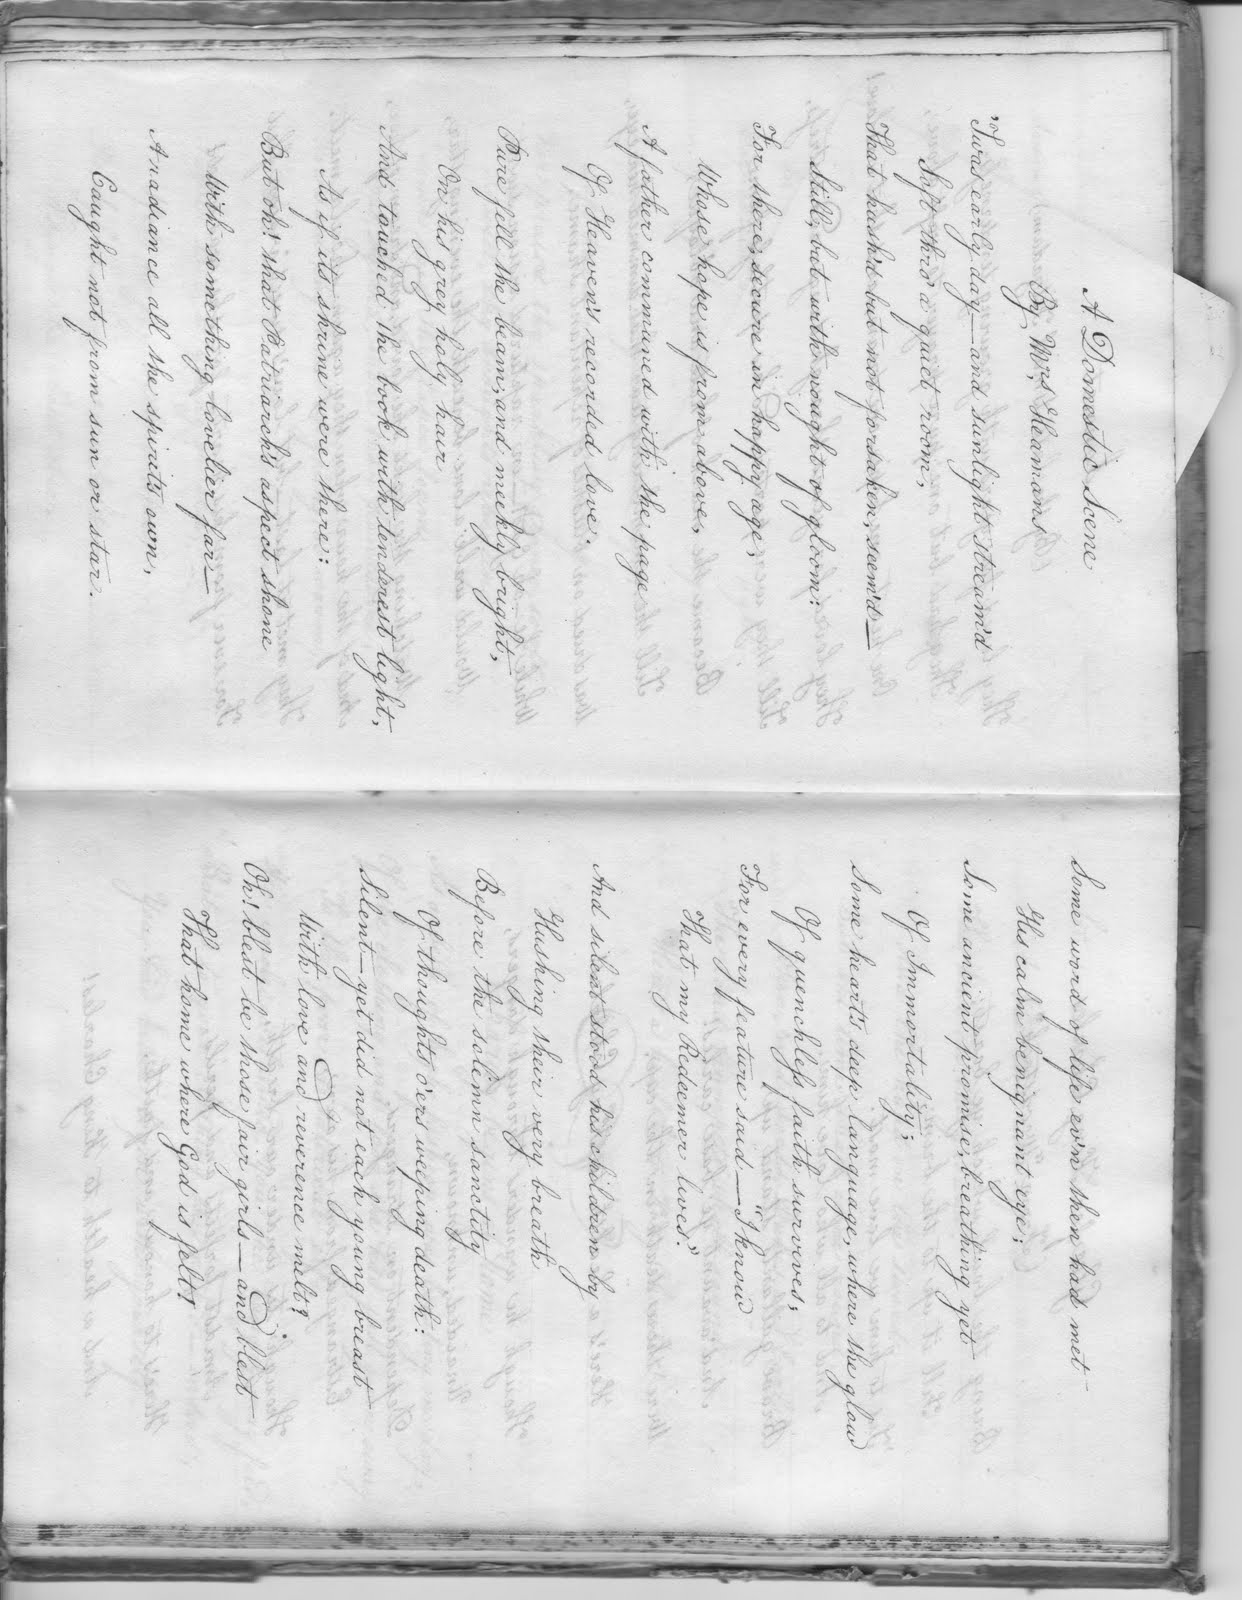 A Domestic Scene
By Mrs Heamans
'Twas early day—and sunlight stream'd
Soft thro' a quiet room,
That hush'd but not forsaken, seem'd—
Still, but with nought of gloom:
For there, secure in happy age,
Whose hope is from above,
A father communed with the page
Of Heaven's recorded love.
Pure fell the beam, and meekly bright,
On his grey holy hair
And touched the book with tenderest light,
As if its shrine were there:
But oh! that Patriarch's aspect shone
With something lovelier far—
A radiance all the spirits own,
Caught not from sun or star.
Some word of life ev'n then had met
His calm benignant eye;
Some ancient promise, breathing yet
Of Immortality;
Some heart's deep language, where the glow
Of quenchless faith survives,
For every feature said—"I know
That my Redeemer lives."
And silent stood his children by
Hushing their very breath
Before the solemn sanctity
Of thoughts o'ersweeping death:
Silent—yet did not each young breast
With love and reverence melt?
Oh! blest be those fair girls—and blest
That home where God is felt!